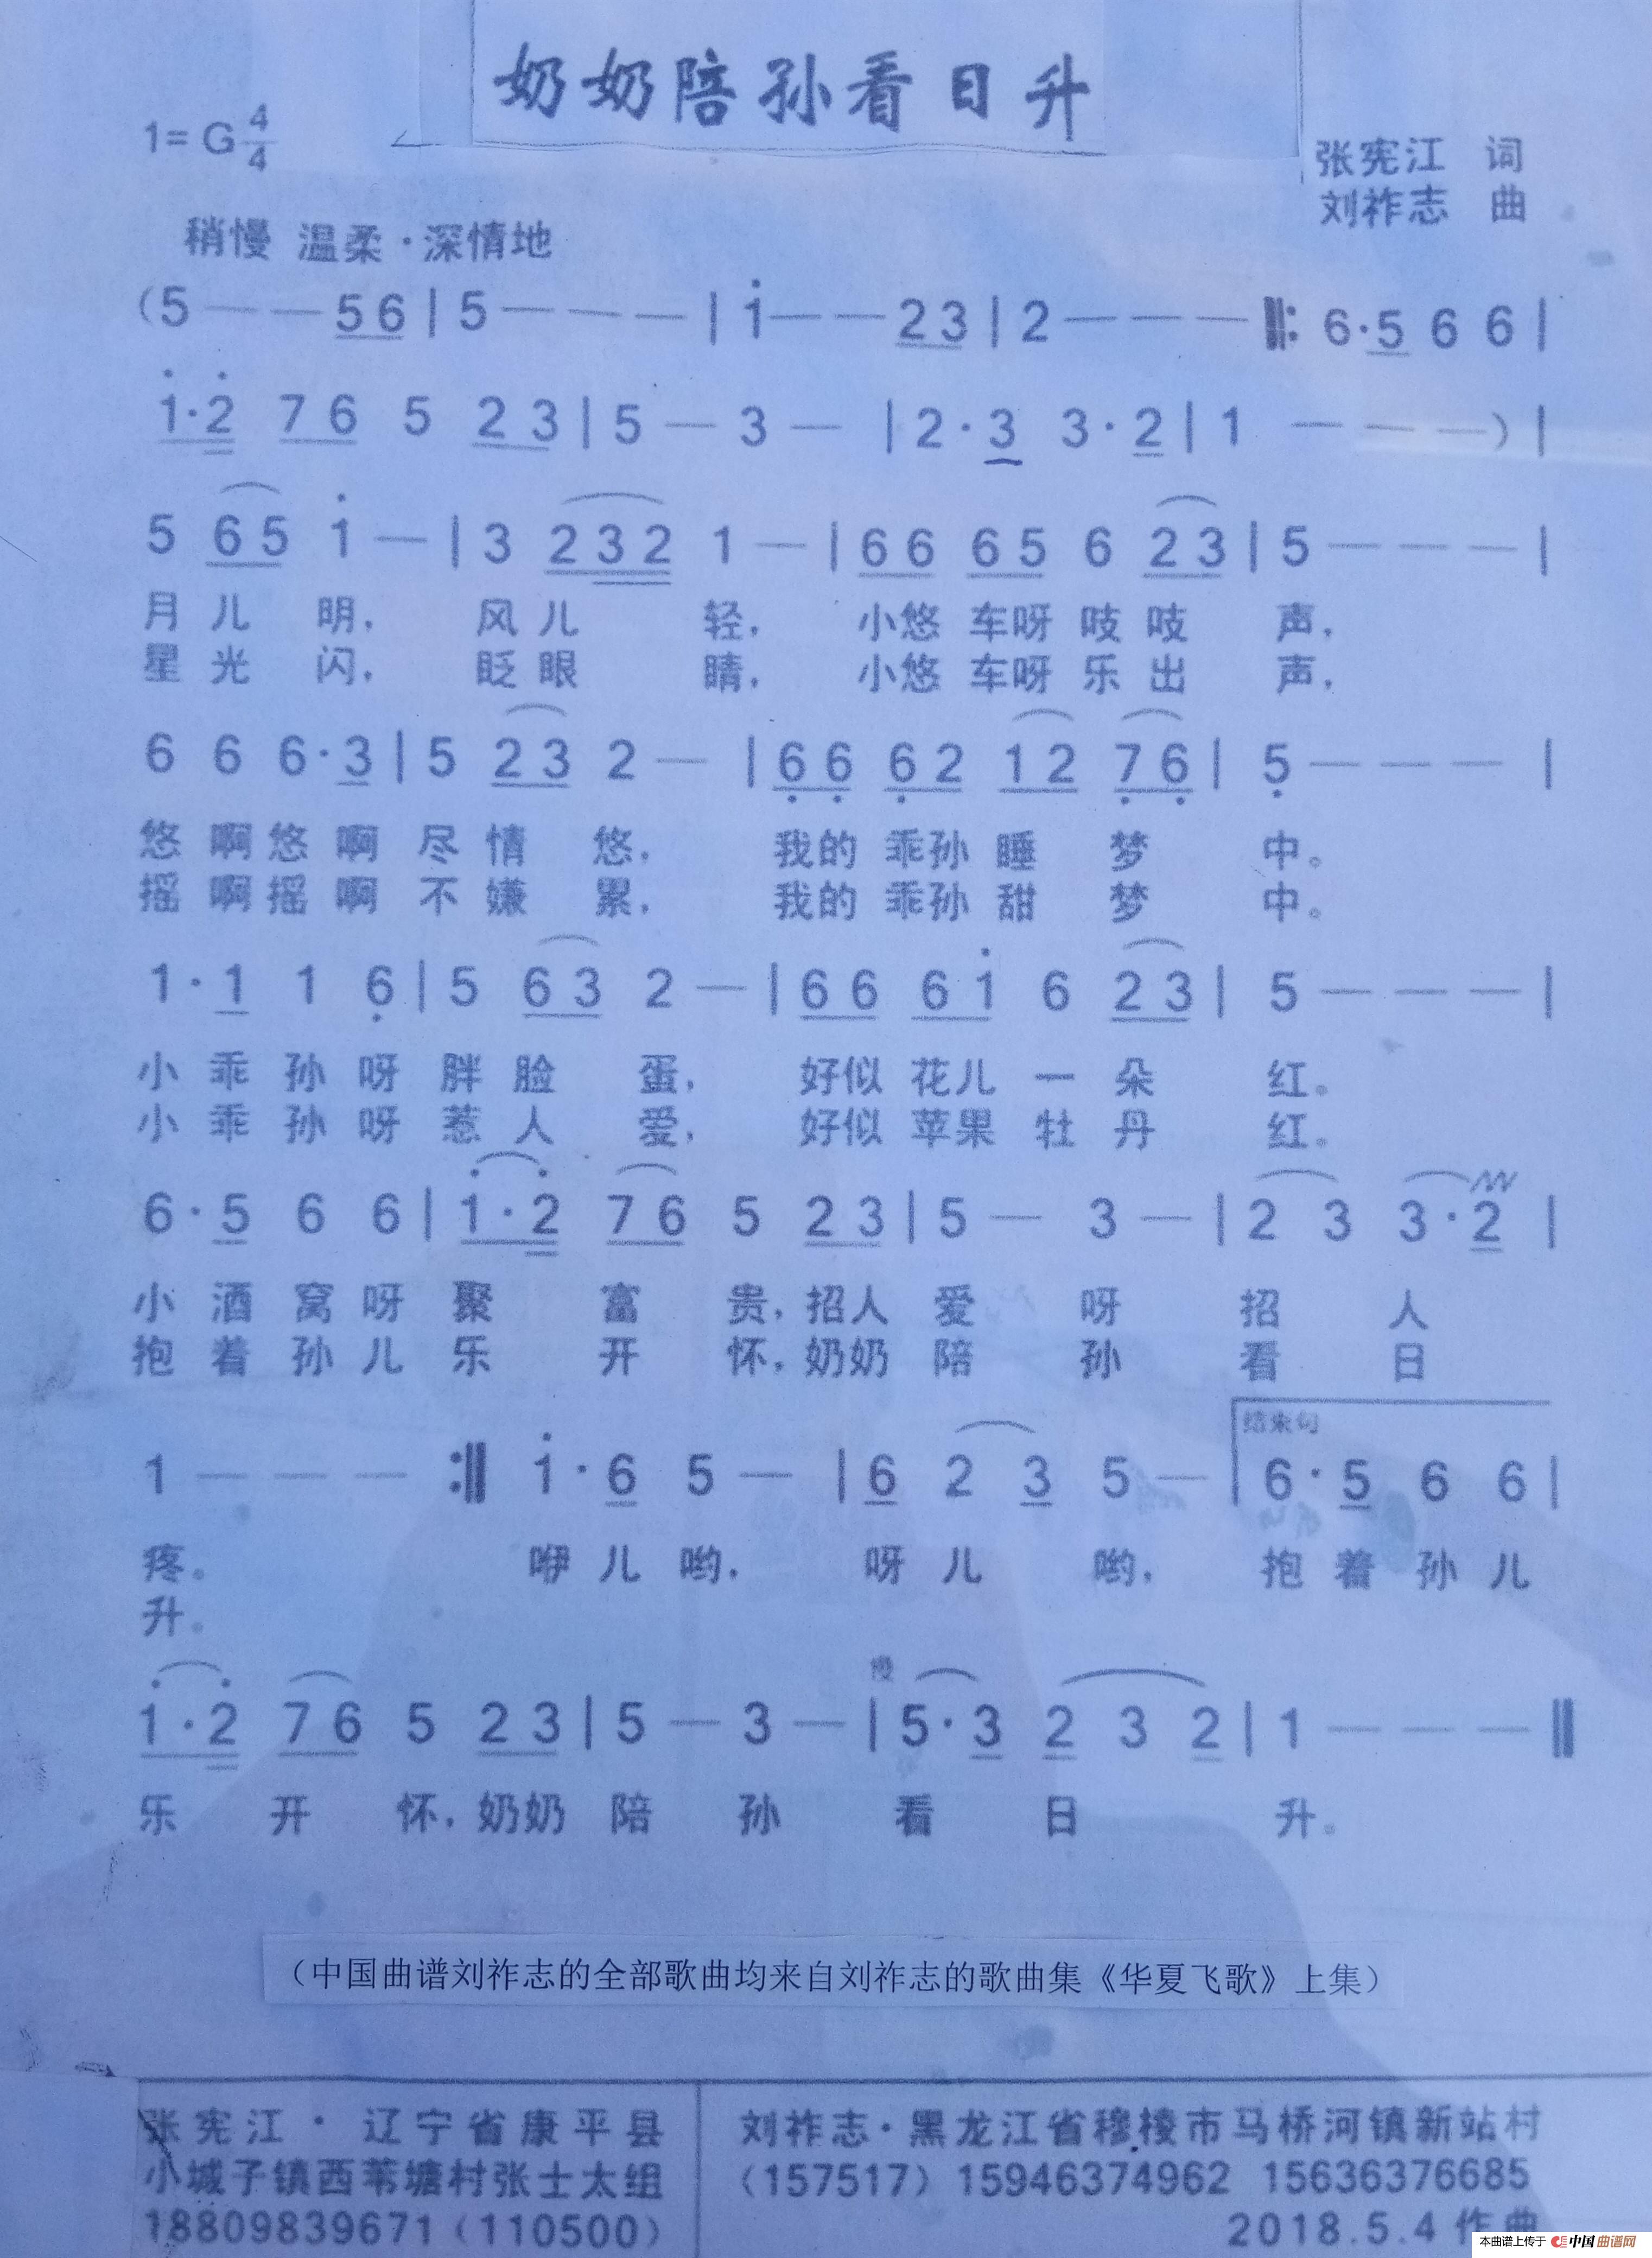 奶奶陪孙看日升
1=G 4/4
张宪江 词
刘祚志 曲
稍慢 温柔·深情地
(5 — — 56 | 5 — — — | 1̇ — — 23 | 2 — — — ‖: 6·5 6 6 |
1̇·2̇ 76 5 23 | 5 — 3 — | 2·3 3·2 | 1 — — —) |
5 65 1̇ — | 3 232 1 — | 66 65 6 23 | 5 — — — |
月儿 明, 风儿 轻, 小悠 车呀 吱 吱 声,
星光 闪, 眨眼 睛, 小悠 车呀 乐 出 声,
6 6 6·3 | 5 23 2 — | 6̣6̣ 6̣2 12 7̣6̣ | 5̣ — — — |
悠 啊 悠 啊 尽 情 悠, 我的 乖孙 睡 梦 中。
摇 啊 摇 啊 不 嫌 累, 我的 乖孙 甜 梦 中。
1·1 1 6̣ | 5 63 2 — | 66 61̇ 6 23 | 5 — — — |
小 乖 孙 呀 胖 脸 蛋, 好似 花儿 一 朵 红。
小 乖 孙 呀 惹 人 爱, 好似 苹果 牡 丹 红。
6·5 6 6 | 1̇·2̇ 76 5 23 | 5 — 3 — | 2 3 3·2 |
小 酒 窝 呀 聚 富 贵, 招人 爱 呀 招 人
抱 着 孙 儿 乐 开 怀, 奶奶 陪 孙 看 日
结束句
1 — — — :‖ 1̇·6 5 — | 6 2 3 5 — | 6·5 6 6 |
疼。 咿 儿 哟, 呀 儿 哟, 抱 着 孙 儿
升。
慢
1̇·2̇ 76 5 23 | 5 — 3 — | 5·3 2 3 2 | 1 — — — ‖
乐 开 怀, 奶奶 陪 孙 看 日 升。
(中国曲谱刘祚志的全部歌曲均来自刘祚志的歌曲集《华夏飞歌》上集)
张宪江·辽宁省康平县
小城子镇西苇塘村张士太组
18809839671(110500)
刘祚志·黑龙江省穆棱市马桥河镇新站村
(157517) 15946374962 15636376685
2018.5.4 作曲
本曲谱上传于 中国曲谱网